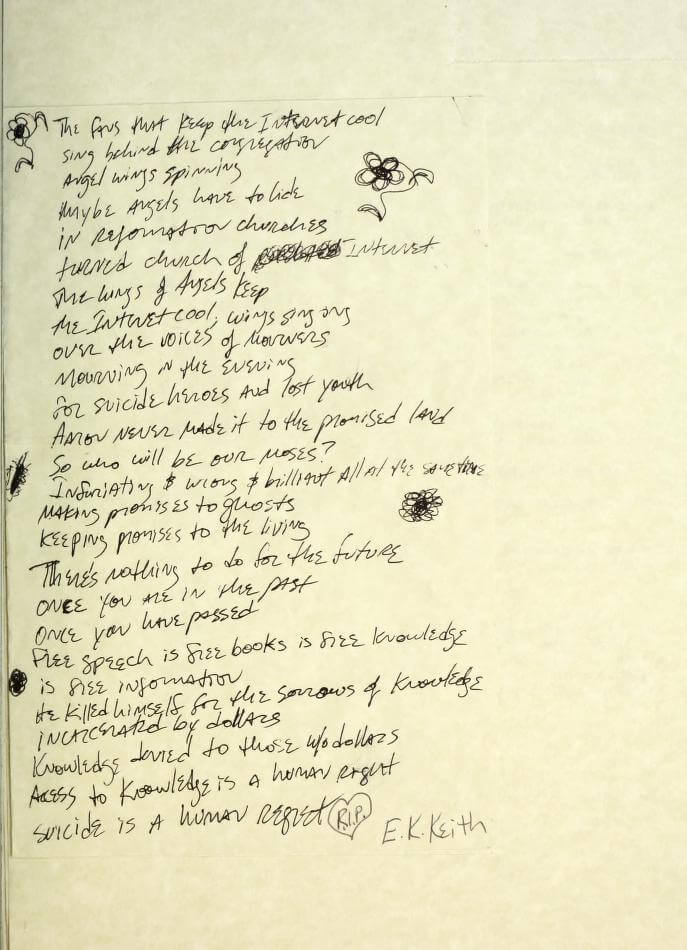 The fans that keep the Internet cool
sing behind the congregation
Angel wings spinning
Maybe Angels have to hide
in reformation churches
turned church of Internet
The wings of Angels keep
the Internet cool, wings sing song
over the voices of Mourners
Mourning in the evening
for suicide heroes and lost youth
Aaron never made it to the promised land
So who will be our Moses?
Infuriating & wrong & brilliant All at the same time
Making promises to ghosts
Keeping promises to the living
There's nothing to do for the future
once you are in the past
once you have passed
Free speech is free books is free knowledge
is free information
He killed himself for the sorrows of knowledge
incarcerated by dollars
Knowledge denied to those w/o dollars
Access to Knowledge is a human right
suicide is a human regret R.I.P.
E.K.Keith